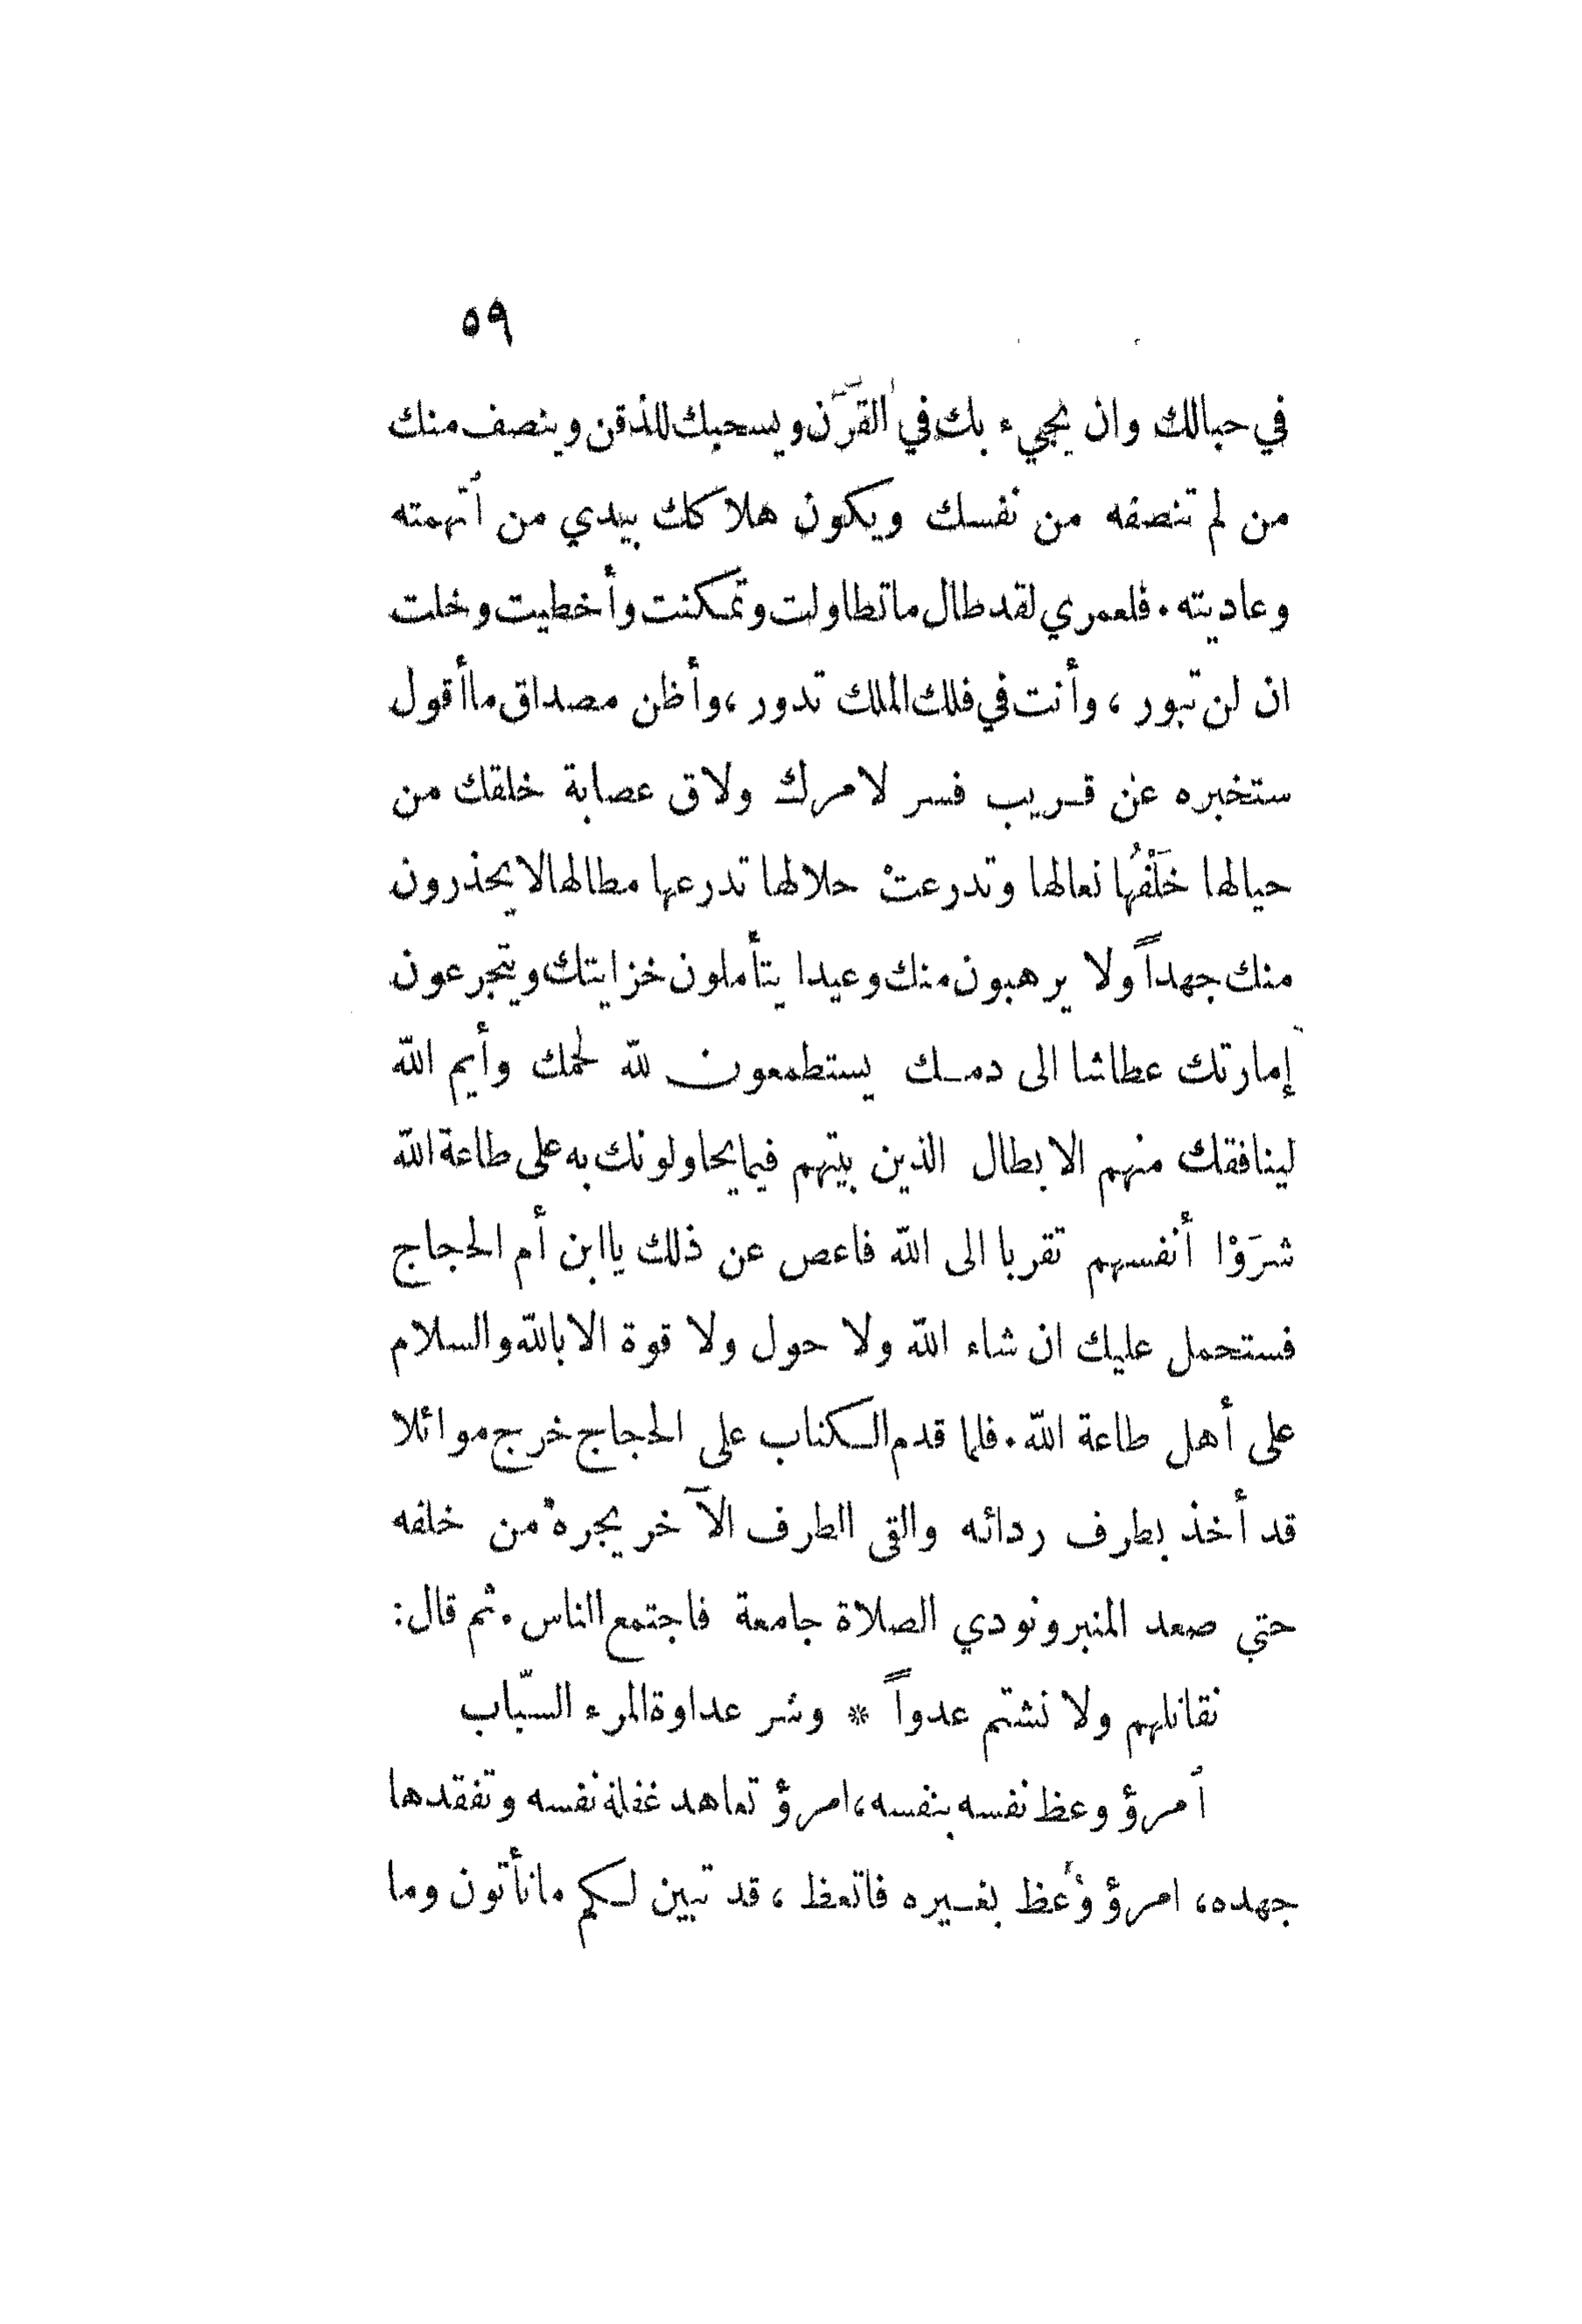 ٥٩
في حبالك وان يجيء بك في القَرَن ويسحبك للذقن وينصف منك
من لم تنصفه من نفسك ويكون هلاكك بيدي من اُتهمته
وعاديته. فلعمري لقد طال ما تطاولت وتمكنت وأخطيت وخلت
ان لن تبور، وأنت في فلك الملك تدور، وأظن مصداق ما أقول
ستخبره عن قريب فسر لامرك ولاق عصابة خلقك من
حيالها خَلْفُها نعالها وتدرعتْ حلالها تدرعها مطالها لا يحذرون
منك جهداً ولا يرهبون منك وعيدا يتأملون خزايتك ويتجرعون
إمارتك عطاشا الى دمك يستطمعون لله لحمك وأيم الله
لينافقك منهم الابطال الذين بيتهم فيما يحاولونك به على طاعة الله
شرَوْا أنفسهم تقربا الى الله فاعص عن ذلك ياابن أم الحجاج
فستحمل عليك ان شاء الله ولا حول ولا قوة الا بالله والسلام
على أهل طاعة الله. فلما قدم الكتاب على الحجاج خرج موائلا
قد أخذ بطرف ردائه والقى الطرف الآخر يجره من خلفه
حتى صعد المنبر ونودي الصلاة جامعة فاجتمع الناس. ثم قال:
نقاتلهم ولا نشتم عدواً * وشر عداوة المرء السّباب
اُمرؤ وعظ نفسه بنفسه، امرؤ تعاهد غفلة نفسه وتفقدها
جهده، امرؤ وُعظ بغيره فاتعظ، قد تبين لكم ما تأتون وما